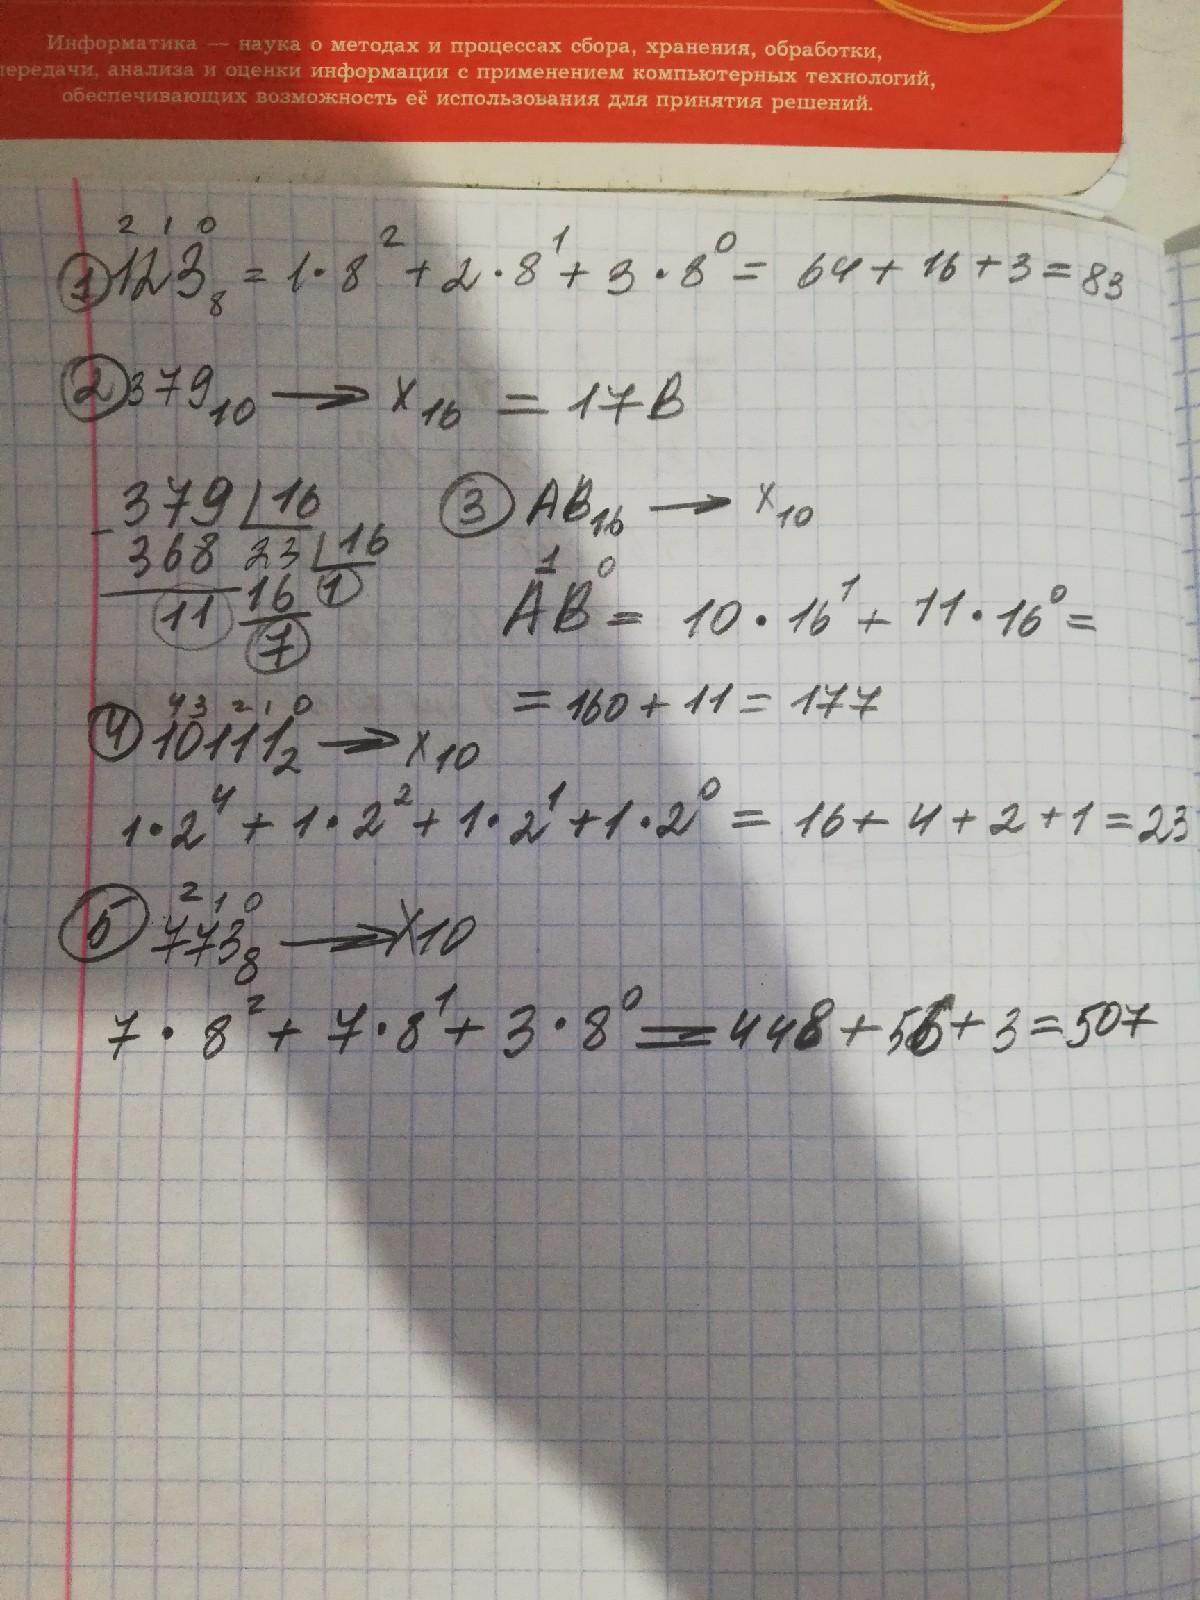 Информатика — наука о методах и процессах сбора, хранения, обработки,
передачи, анализа и оценки информации с применением компьютерных технологий,
обеспечивающих возможность её использования для принятия решений.
2 1 0
① 123₈ = 1·8² + 2·8¹ + 3·8⁰ = 64 + 16 + 3 = 83
② 379₁₀ → x₁₆ = 17B
379 | 16
- 368 23 | 16
11 16 1
7
③ AB₁₆ → x₁₀
1 0
AB = 10·16¹ + 11·16⁰ =
= 160 + 11 = 177
4 3 2 1 0
④ 10111₂ → x₁₀
1·2⁴ + 1·2² + 1·2¹ + 1·2⁰ = 16 + 4 + 2 + 1 = 23
2 1 0
⑤ 773₈ → x10
7·8² + 7·8¹ + 3·8⁰ = 448 + 56 + 3 = 507